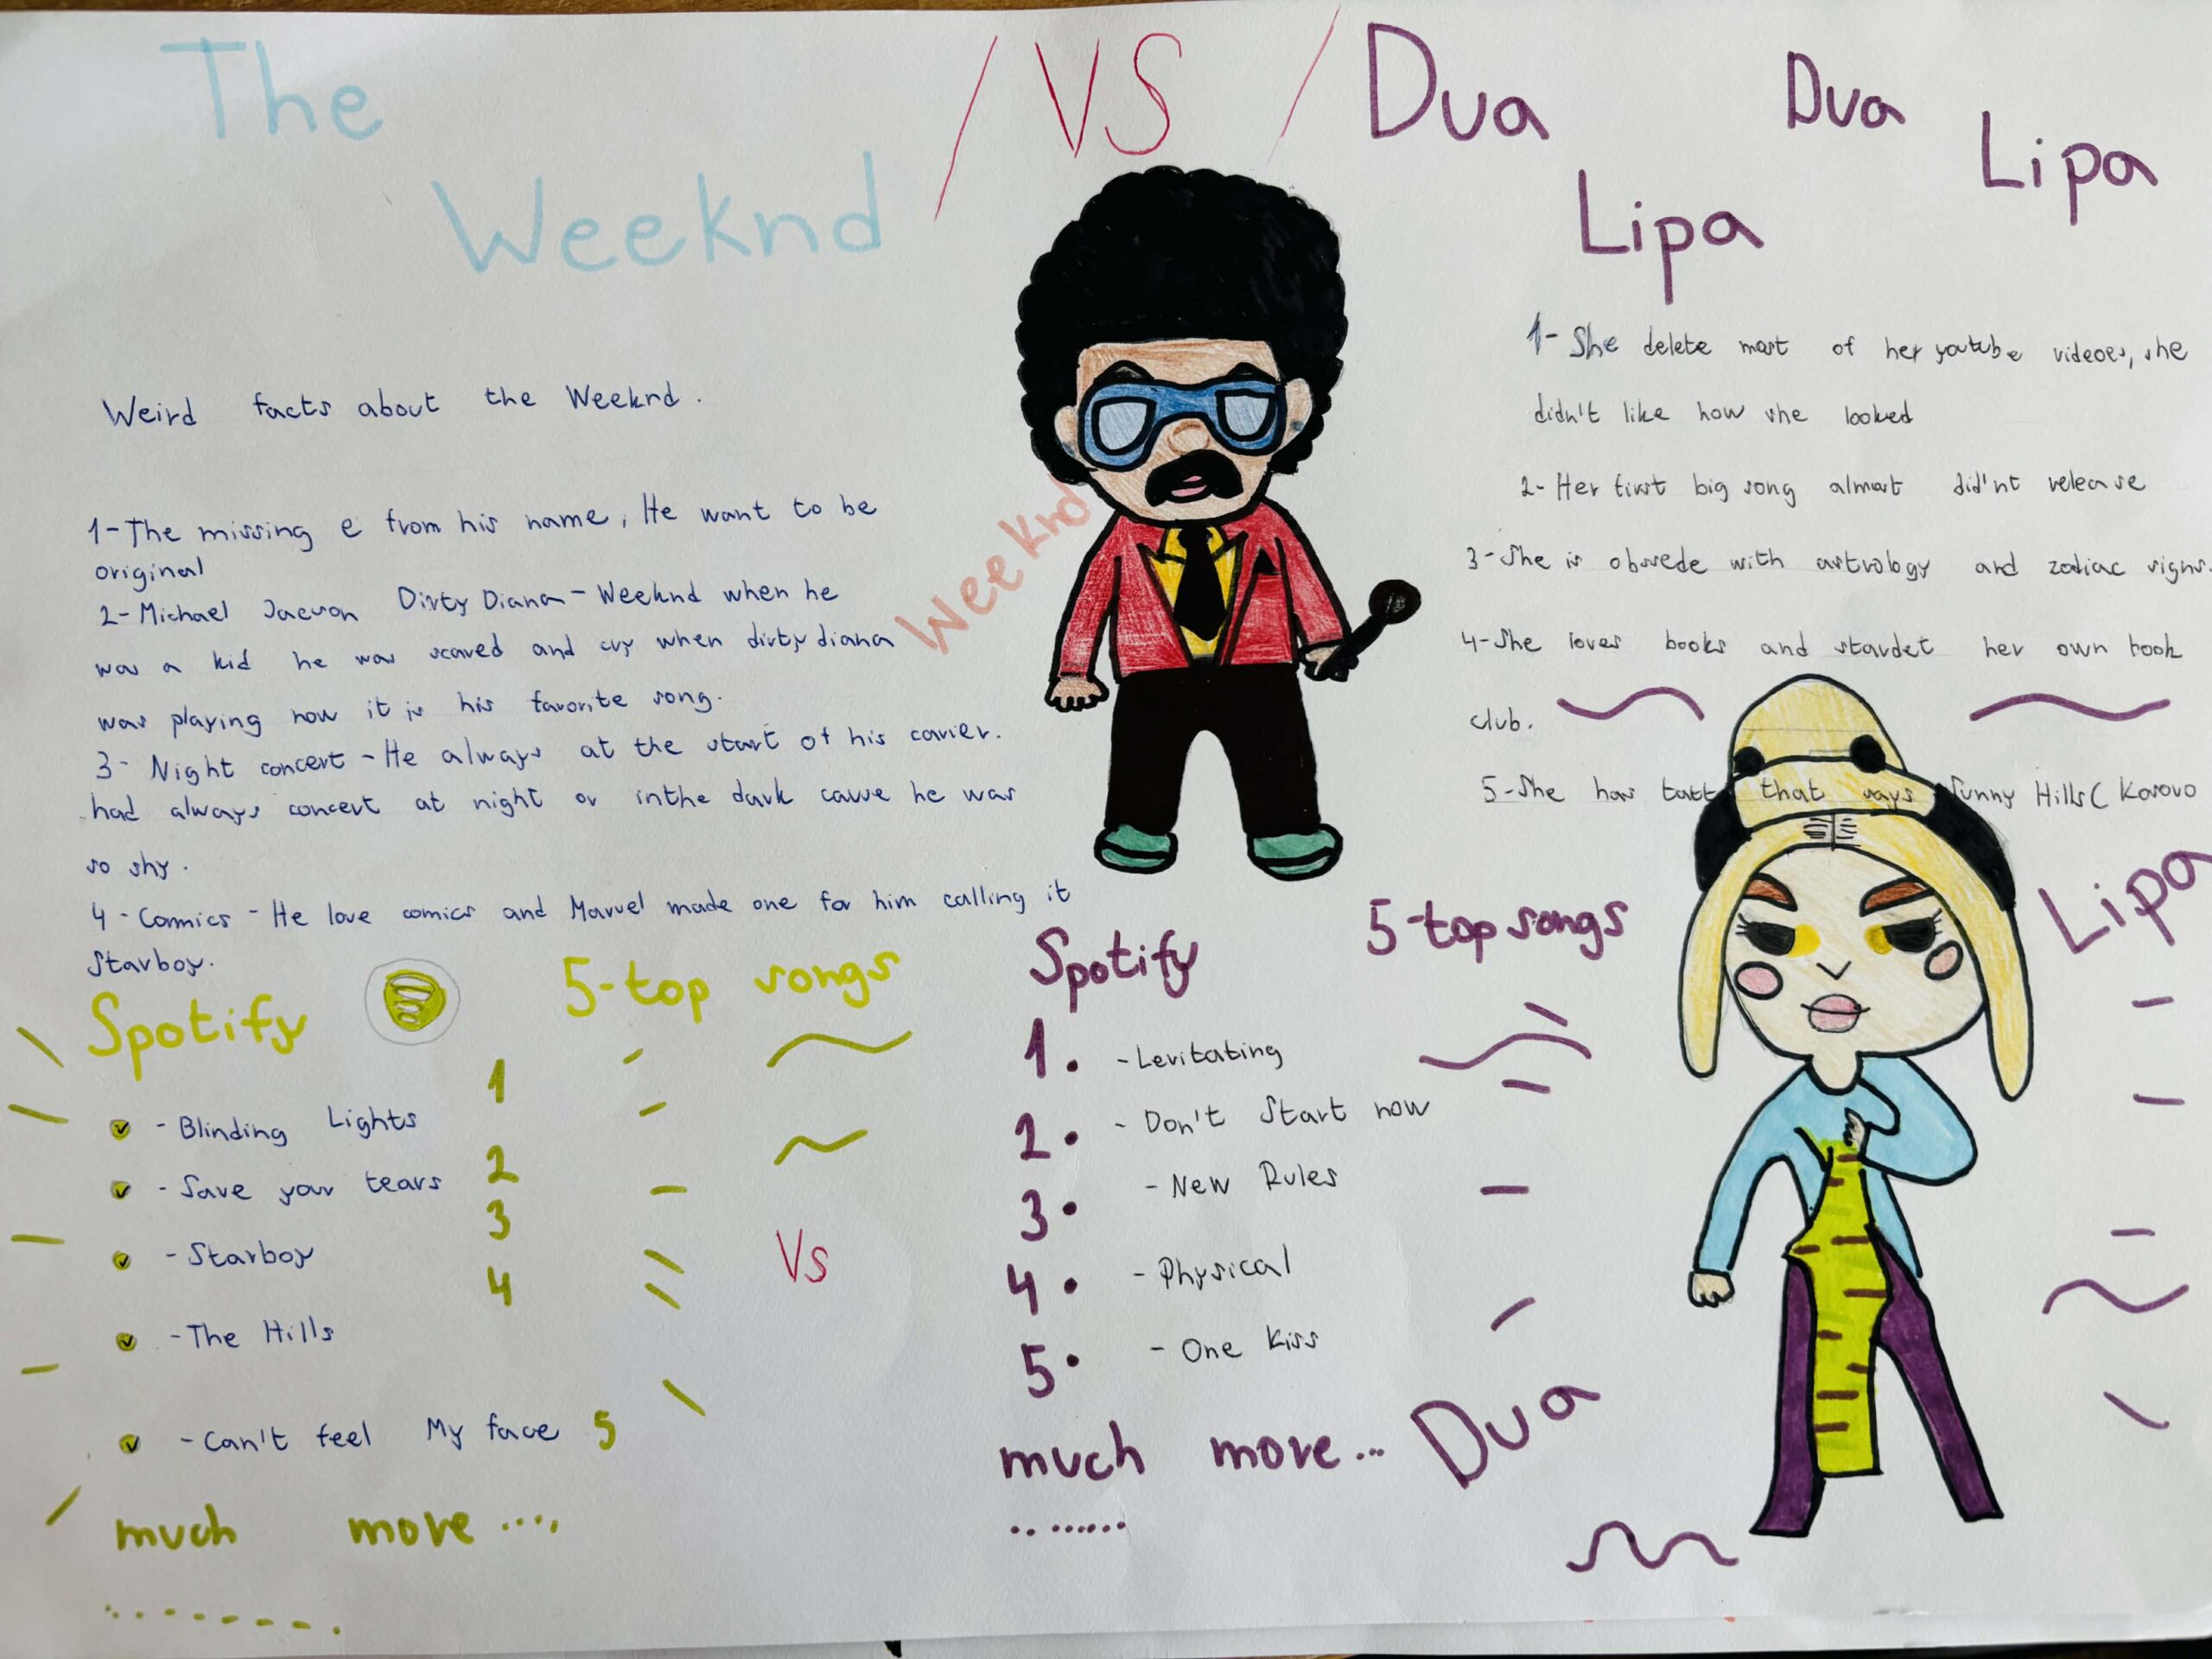 The
Weeknd
/ VS /
Dua
Lipa
Dua
Lipa
Weird facts about the Weeknd.
1-The missing e from his name, He want to be
original
2-Michael Jacson Dirty Diana-Weeknd when he
was a kid he was scared and cry when dirty diana
was playing now it is his favorite song.
3- Night concert-He always at the start of his carier.
had always concert at night or inthe dark cause he was
so shy.
4-Commics-He love comics and Marvel made one for him calling it
Starboy.
Weeknd
1-She delete most of her youtube videoes, she
didn't like how she looked
2-Her first big song almost did'nt release
3-She is obssede with astrology and zodiac signs.
4-She loves books and stardet her own book
club.
5-She has tatt that says Sunny Hills( Kosovo
Lipa
Spotify 5-top songs
1
- Blinding Lights
2
- Save your tears
3
- Starboy
4
- The Hills
- Can't feel My face 5
much more ....,
Vs
Spotify 5-top songs
1. -Levitating
2. - Don't Start now
3. - New Rules
4. - Physical
5. - One Kiss
much more...
Dua